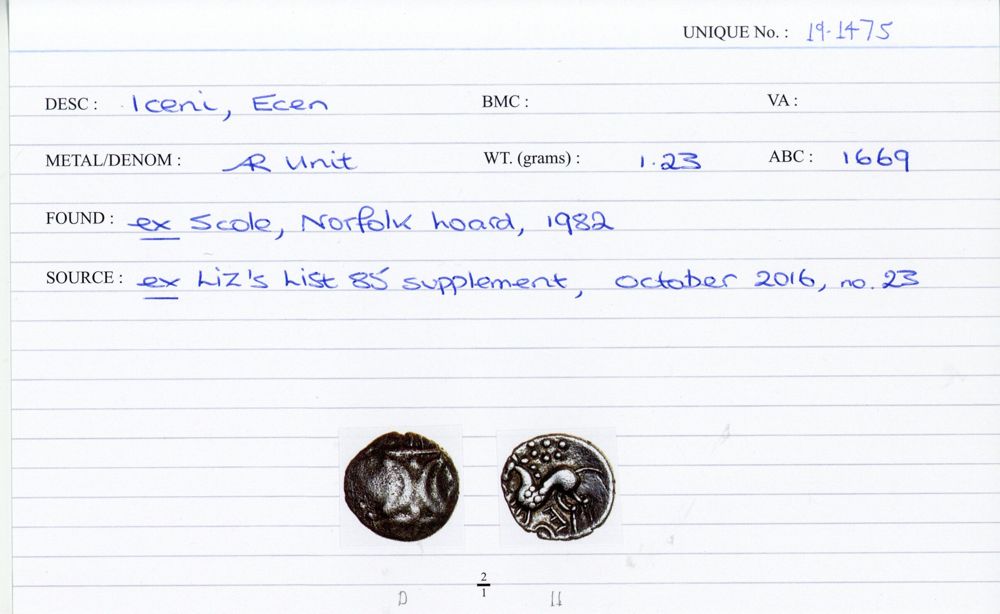 UNIQUE No. : 19.1475
DESC : Iceni, Ecen BMC : VA :
METAL/DENOM : AR Unit WT. (grams) : 1.23 ABC : 1669
FOUND : ex Scole, Norfolk hoard, 1982
SOURCE : ex Liz's List 85 supplement, October 2016, no. 23
2
1
D